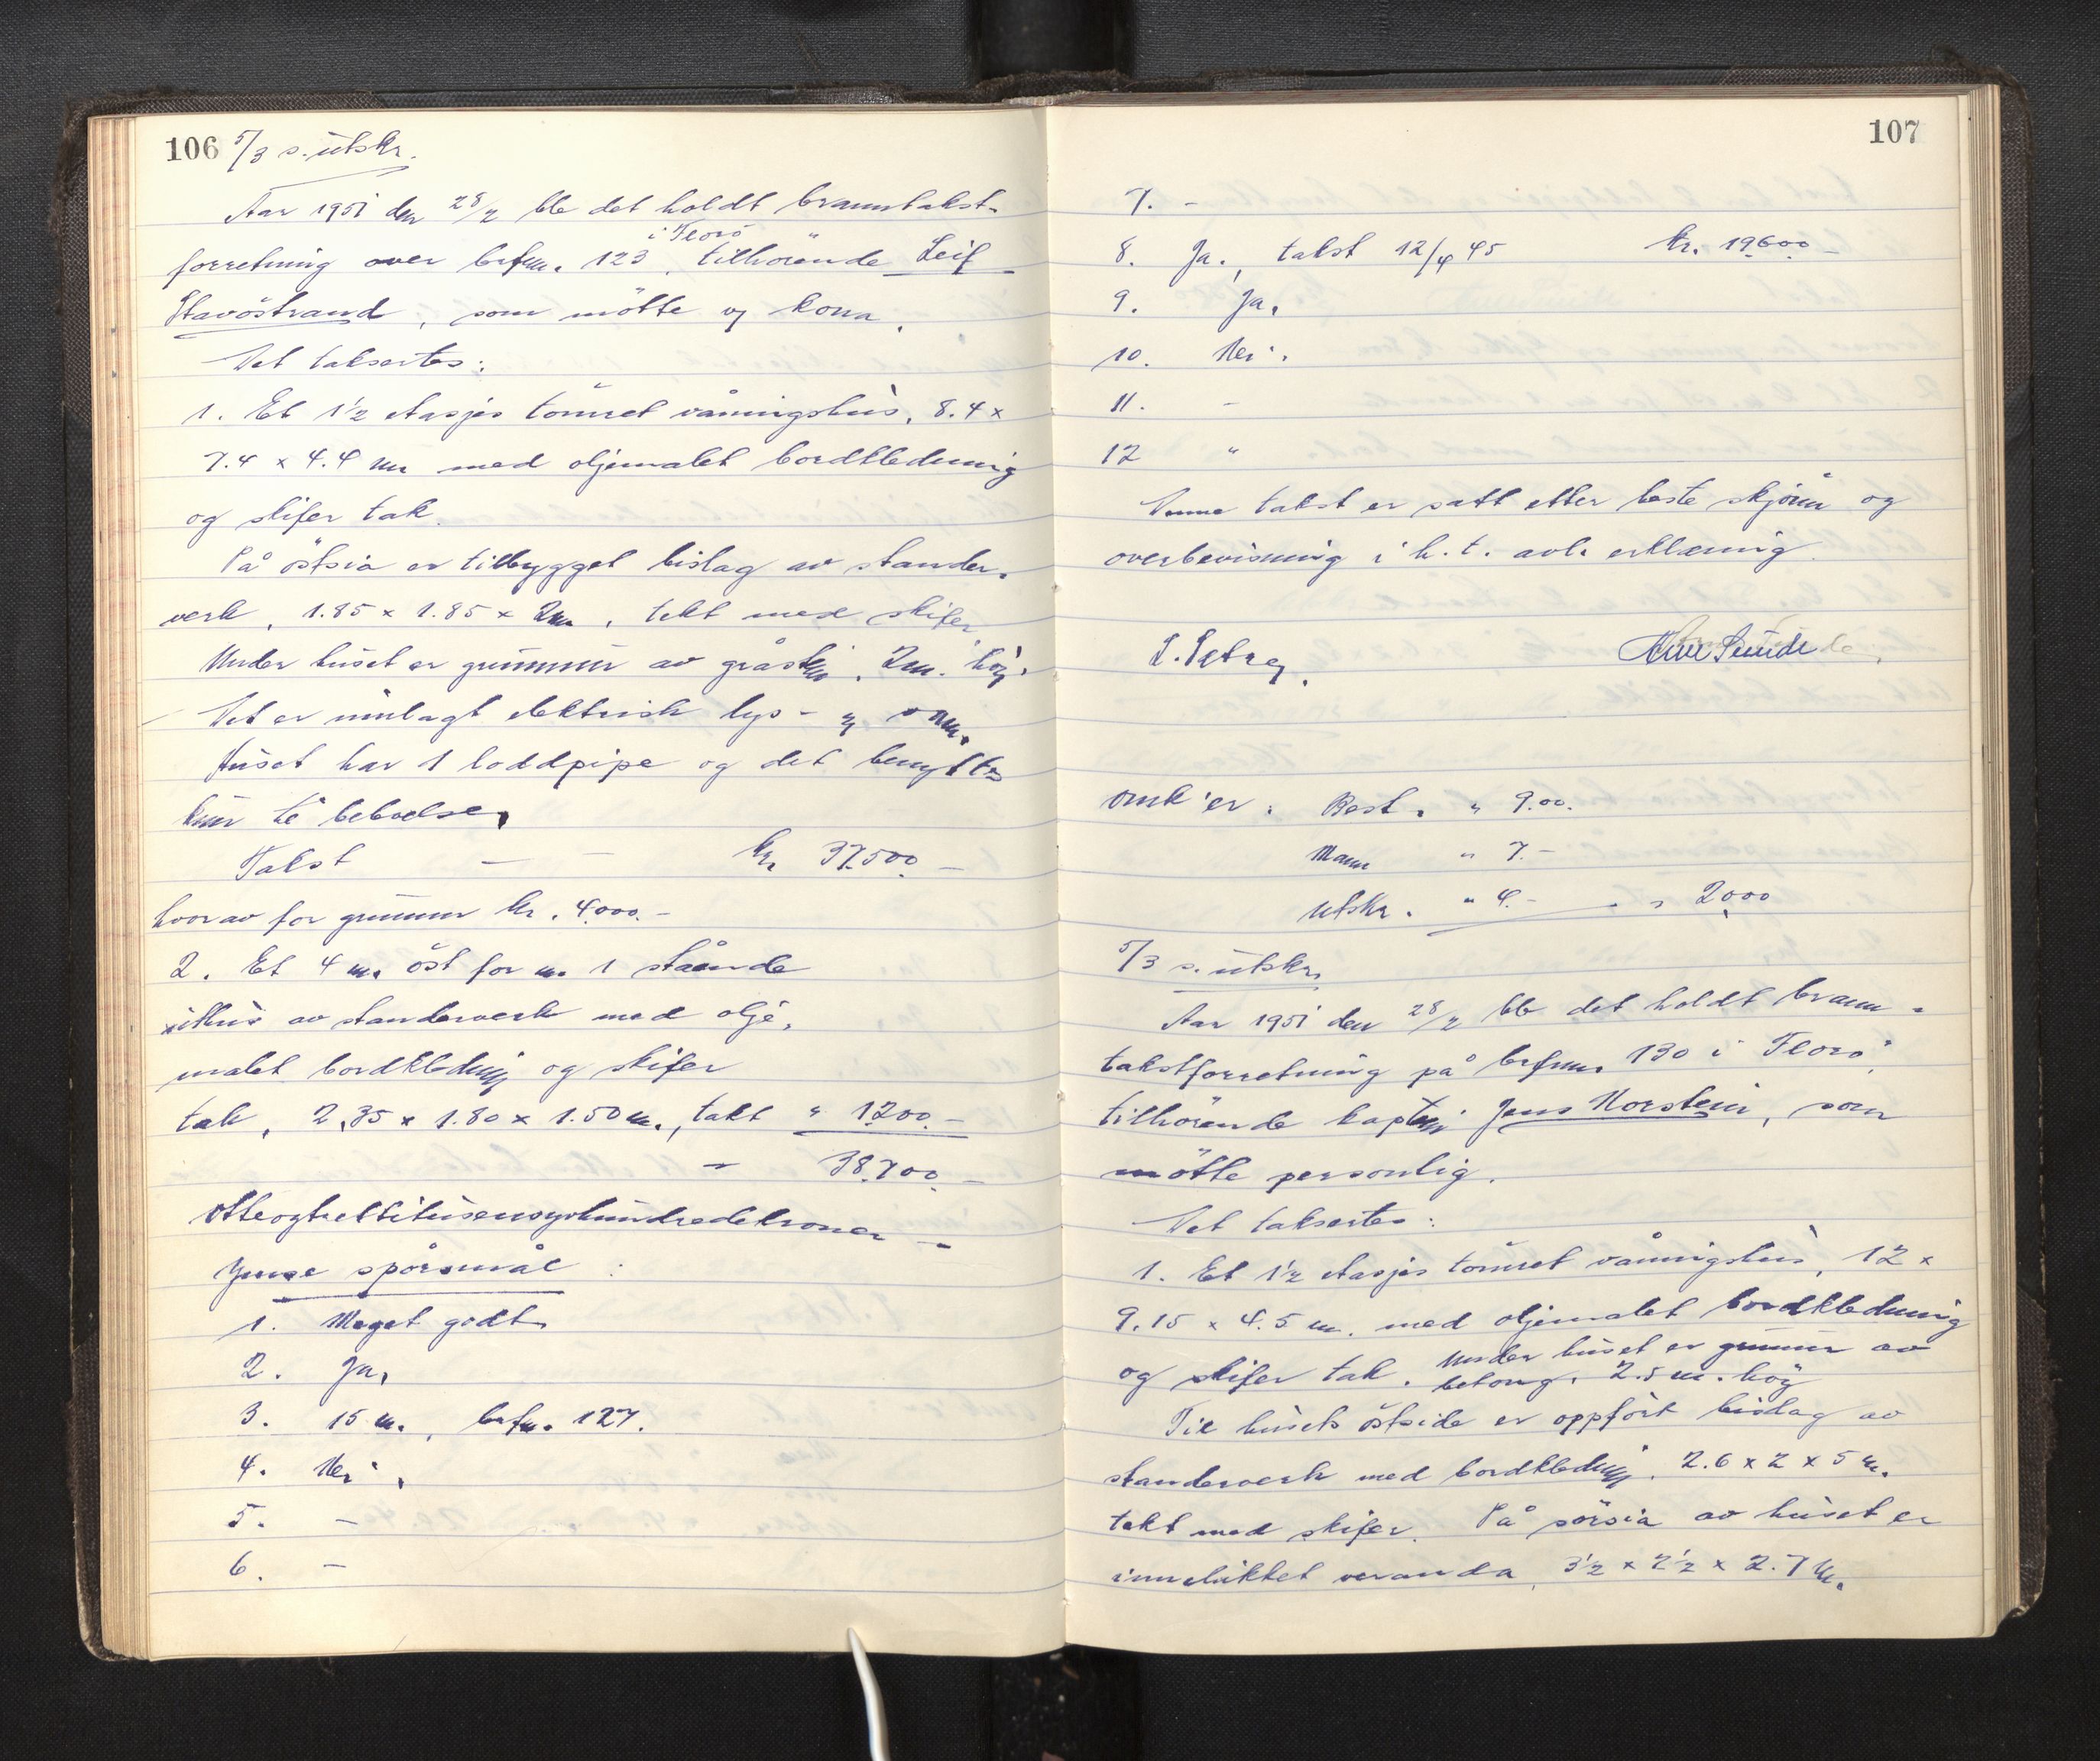 106 5/3 s. utskr.
Aar 1951 den 28/2 ble det holdt branntakst-
i Florö
forretning over brfnr. 123, tilhörende Leif
Stavöstrand, som mötte og kona.
Det taksertes:
1. Et 1 1/2 etasjes tömret våningshus, 8.4 x
7.4 x 4.4 m med oljemalet bordkledning
og skifer tak.
På östsia er tilbygget bislag av stander-
verk, 1.85 x 1.85 x 2m, tekt med skifer
Under huset er grunnmur av gråstein, 2m. höy.
Det er innlagt elektrisk lys- og
Huset har 1 loddpipe og det benyttes
kun til beboelse.
Takst — — kr. 37.500.—
hvorav for grunnmur kr. 4.000.—
2. Et 4 m. öst for nr. 1 stående
uthus av standerverk med olje-
malet bordkledning og skifer
tak, 2.35 x 1.80 x 1.50 m., takt " 1.200.—
— 38.700.—
Åtteogtrettitusensyvhundredekroner —
Ymse spörsmål:
1. Meget godt.
2. Ja.
3. 15 m., brfnr. 127.
4. Nei.
5. —
6. —
107
7. -
8. Ja., takst 12/4 45 kr. 19.600.—
9. Ja.
10. Nei.
11. -
12 "
Denne takst er satt etter beste skjönn og
overbevisning i h. t. avl. erklæring.
omk'er: Best. " 9.00.
Mann " 7.—
Utskr. " 4.— - " 20.00
5/3 s. utskr.
Aar 1951 den 28/2 ble det holdt brann-
takstforretning på brfnr. 130 i Florö,
tilhörende kaptein Jens Horstein, som
mötte personlig.
Det taksertes:
1. Et 1 1/2 etasjes tömret våningshus, 12 x
9.15 x 4.5 m. med oljemalet bordkledning
og skifer tak. Under huset er grunnmur av
betong, 2.5 m. höy
Til husets östside er oppfört bislag av
standerverk med bordkledning, 2.6 x 2 x 5 m.
tekt med skifer. På sörsia av huset er
innebikket veranda, 3 1/2 x 2 1/2 x 2.7 m.